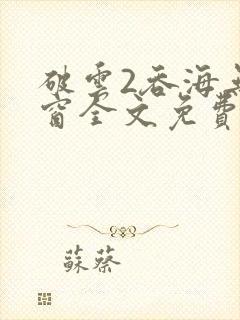 破雲2吞海無
窗全文免費
蘇蔡